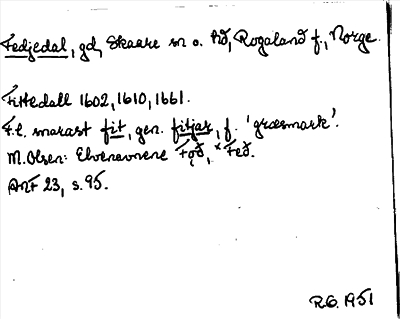 Fedjedal, gd, Skaare sn o. hd, Rogaland f., Norge.
Fittedall 1602, 1610, 1661.
F.l. snarast fit, gen. fitjar, f. 'græsmark'.
M. Olsen: Elvenavnene Fǫð, *Feð.
ANF 23, s. 95.
R.G. 1951